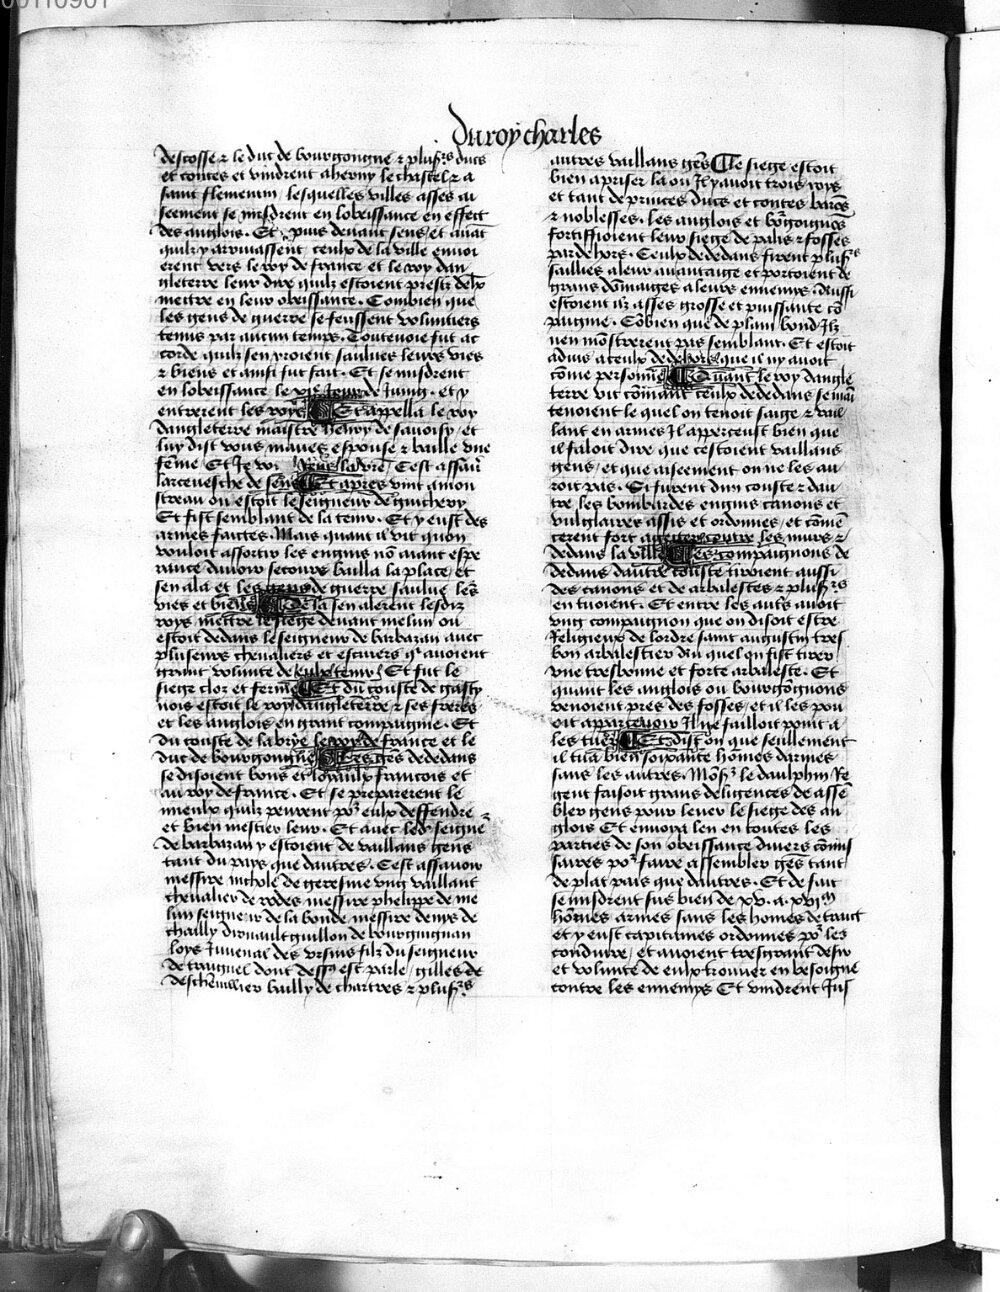 00110901
Du roy charles
descosse ⁊ le duc de bourgongne ⁊ plusrs ducs
et contes et vindrent a herny le chastel ⁊ a
saint flementin lesquelles villes asses ai
seement se misdrent en lobeissance en effect
des anglois. Et puis devant sens/ et avāt
quilz y arrivassent ceulx de la ville envoi
erent vers le roy de france et le roy dan
gleterre leur dire quilz estoient prestz de lx
mettre en leur obeissance. Combien que
les gens de guerre se feussent voluntiers
tenus par aucun temps. Toutevoie fut ac
corde quilz sen yroient saulves leurs vies
⁊ biens et ainsi fut fait. Et se misdrent
en lobeissance le jour de Juing. et y
entrerent les roys Et appella le roy
dangleterre maistre henry de savoisy/ et
luy dist vous maves espouse ⁊ baille vne
feme Et Je vo la vre Cest assavr
larcevesche de sens Et apres vint a mon
streau ou estoit le seigneur de guichery
Et fist semblant de la tenir. Et y eust des
armes faictes. Mais quant il vit quon
vouloit assortir les engins nō aiant espe
rance davoir secours bailla la place/ et
sen ala et les gens de guerre saulve les
vies et biens De la sen alerent lesdiz
roys mettre le siege devant melun ou
estoit dedans le seigneur de barbazan avec
plusieurs chevaliers et escuiers q avoient
grant volunte de eulx tenir Et fut le
siege cloz et ferme Et du couste de gasty
nois estoit le roy dangleterre ⁊ ses freres
et les anglois en grant compaignie. Et
du couste de la brye le roy de france et le
duc de bourgongne Les ges dedans
se disoient bons et loyaulx francois et
au roy de france. Et se preparerent le
mieulx quilz peurent po eulx deffendre
et bien mestier leur. Et avec led seigne
de barbazan y estoient de vaillans gens
tant du pays que dautres. Cest assavoir
messire nichole de geresme vng vaillant
chevalier de rodes messire phelippe de me
lun seigneur de la borde messire denys de
chailly guillon de bourguignan
loys Juvenal des vrsins filz du seigneur
de traignel dont dess est parle/ gilles de
deschevillier bailly de chartres ⁊ plusrs
autres vaillans gēs Le siege estoit
bien a priser la ou Il y avoit trois roys
et tant de princes ducs et contes barōs
⁊ noblesses. les anglois et bōgongnōs
fortiffioient leur siege de palis ⁊ fosses
par dehors. Ceulx de dedans firent plusrs
saillies a leur avantaige et portoient de
grans dōmaiges a leurs ennemys. Aussi
estoient ilz asses grosse et puissante cō
paignie. Cōbien que de plain bond Ilz
nen mōstrerent pas semblant. Et estoit
advis a ceulx de dehors que il ny avoit
cōme personne Quant le roy dangle
terre vit cōmant ceulx de dedans se main
tenoient lequel on tenoit saige ⁊ vail
lant en armes Il apperceust bien que
il faloit dire que cestoient vaillans
gens/ et que aiseement on ne les au
roit pas. Si furent dun couste ⁊ dau
tre les bombardes engins canons et
vulglaires assis et ordonnes/ et cōmē
cerent fort a getter contre les murs ⁊
dedans la ville Les compaignons de
dedans dautre couste tiroient aussi
des canons et de arbalestes ⁊ plusrs
en tuoient. Et entre les autrs avoit
vng compaignon que on disoit estre
Religieux de lordre saint augustin tres
bon arbalestier du quel on fist tirer
vne tresbonne et forte arbaleste. Et
quant les anglois ou bourgōgnons
venoient pres des fosses/ et il les pou
oit appartenoir Il ne failloit point a
les tuer Et dist on que seullement
il tua bien soixante hōmes darmes
sans les autres. Mōsr le daulphin Re
gent faisoit grans deligences de assē
bler gens pour lever le siege des an
glois Et envoya len en toutes les
parties de son obeissance divers cōmis
saires po faire assembler gēs tant
de plat pais que dautres. Et de fait
se misdrent sus bien de xv. a. xvi m
hōmes armes sans les hōmes de trait
et y eust capitaines ordonnes po les
conduire/ et avoient tresgrant desir
et volunte de eulx trouver en besoigne
contre les ennemys Et vindrent Jus